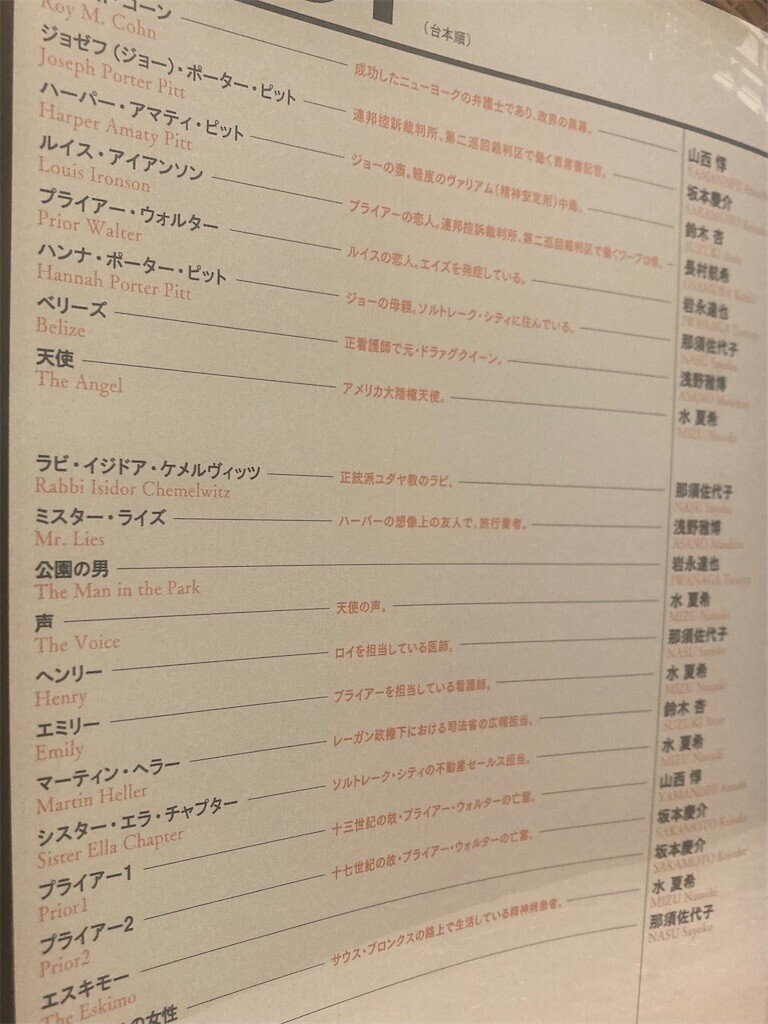 （台本順）
コーン
Roy M. Cohn
成功したニューヨークの弁護士であり、政界の黒幕。
山西 惇
ジョゼフ（ジョー）・ポーター・ピット
Joseph Porter Pitt
連邦控訴裁判所、第二巡回裁判区で働く首席書記官。
坂本慶介
SAKAMOTO
ハーパー・アマティ・ピット
Harper Amaty Pitt
ジョーの妻。軽度のヴァリアム（精神安定剤）中毒。
鈴木 杏
SUZUKI
ルイス・アイアンソン
Louis Ironson
プライアーの恋人。連邦控訴裁判所、第二巡回裁判区で働くワープロ係。
長村航希
プライアー・ウォルター
Prior Walter
ルイスの恋人。エイズを発症している。
岩永達也
IWANAGA
ハンナ・ポーター・ピット
Hannah Porter Pitt
ジョーの母親。ソルトレーク・シティに住んでいる。
那須佐代子
NASU Sayoko
ベリーズ
Belize
正看護師で元・ドラァグクイーン。
浅野雅博
ASANO
天使
The Angel
アメリカ大陸権天使。
水 夏希
MIZU Natsuki
ラビ・イジドア・ケメルヴィッツ
Rabbi Isidor Chemelwitz
正統派ユダヤ教のラビ。
那須佐代子
NASU Sayoko
ミスター・ライズ
Mr. Lies
ハーパーの想像上の友人で、旅行業者。
浅野雅博
ASANO Masahiro
公園の男
The Man in the Park
岩永達也
IWANAGA
声
The Voice
天使の声。
水 夏希
MIZU Natsuki
ヘンリー
Henry
ロイを担当している医師。
那須佐代子
NASU Sayoko
エミリー
Emily
プライアーを担当している看護師。
水 夏希
MIZU Natsuki
マーティン・ヘラー
Martin Heller
レーガン政権下における司法省の広報担当。
鈴木 杏
SUZUKI Anne
シスター・エラ・チャプター
Sister Ella Chapter
ソルトレーク・シティの不動産セールス担当。
水 夏希
MIZU Natsuki
プライアー1
Prior1
十三世紀の故・プライアー・ウォルターの亡霊。
山西 惇
YAMANISHI Atsushi
プライアー2
Prior2
十七世紀の故・プライアー・ウォルターの亡霊。
坂本慶介
SAKAMOTO Keisuke
エスキモー
The Eskimo
坂本慶介
SAKAMOTO Keisuke
水 夏希
MIZU Natsuki
の女性
サウス・ブロンクスの路上で生活している精神病患者。
那須佐代子
NASU Sayoko